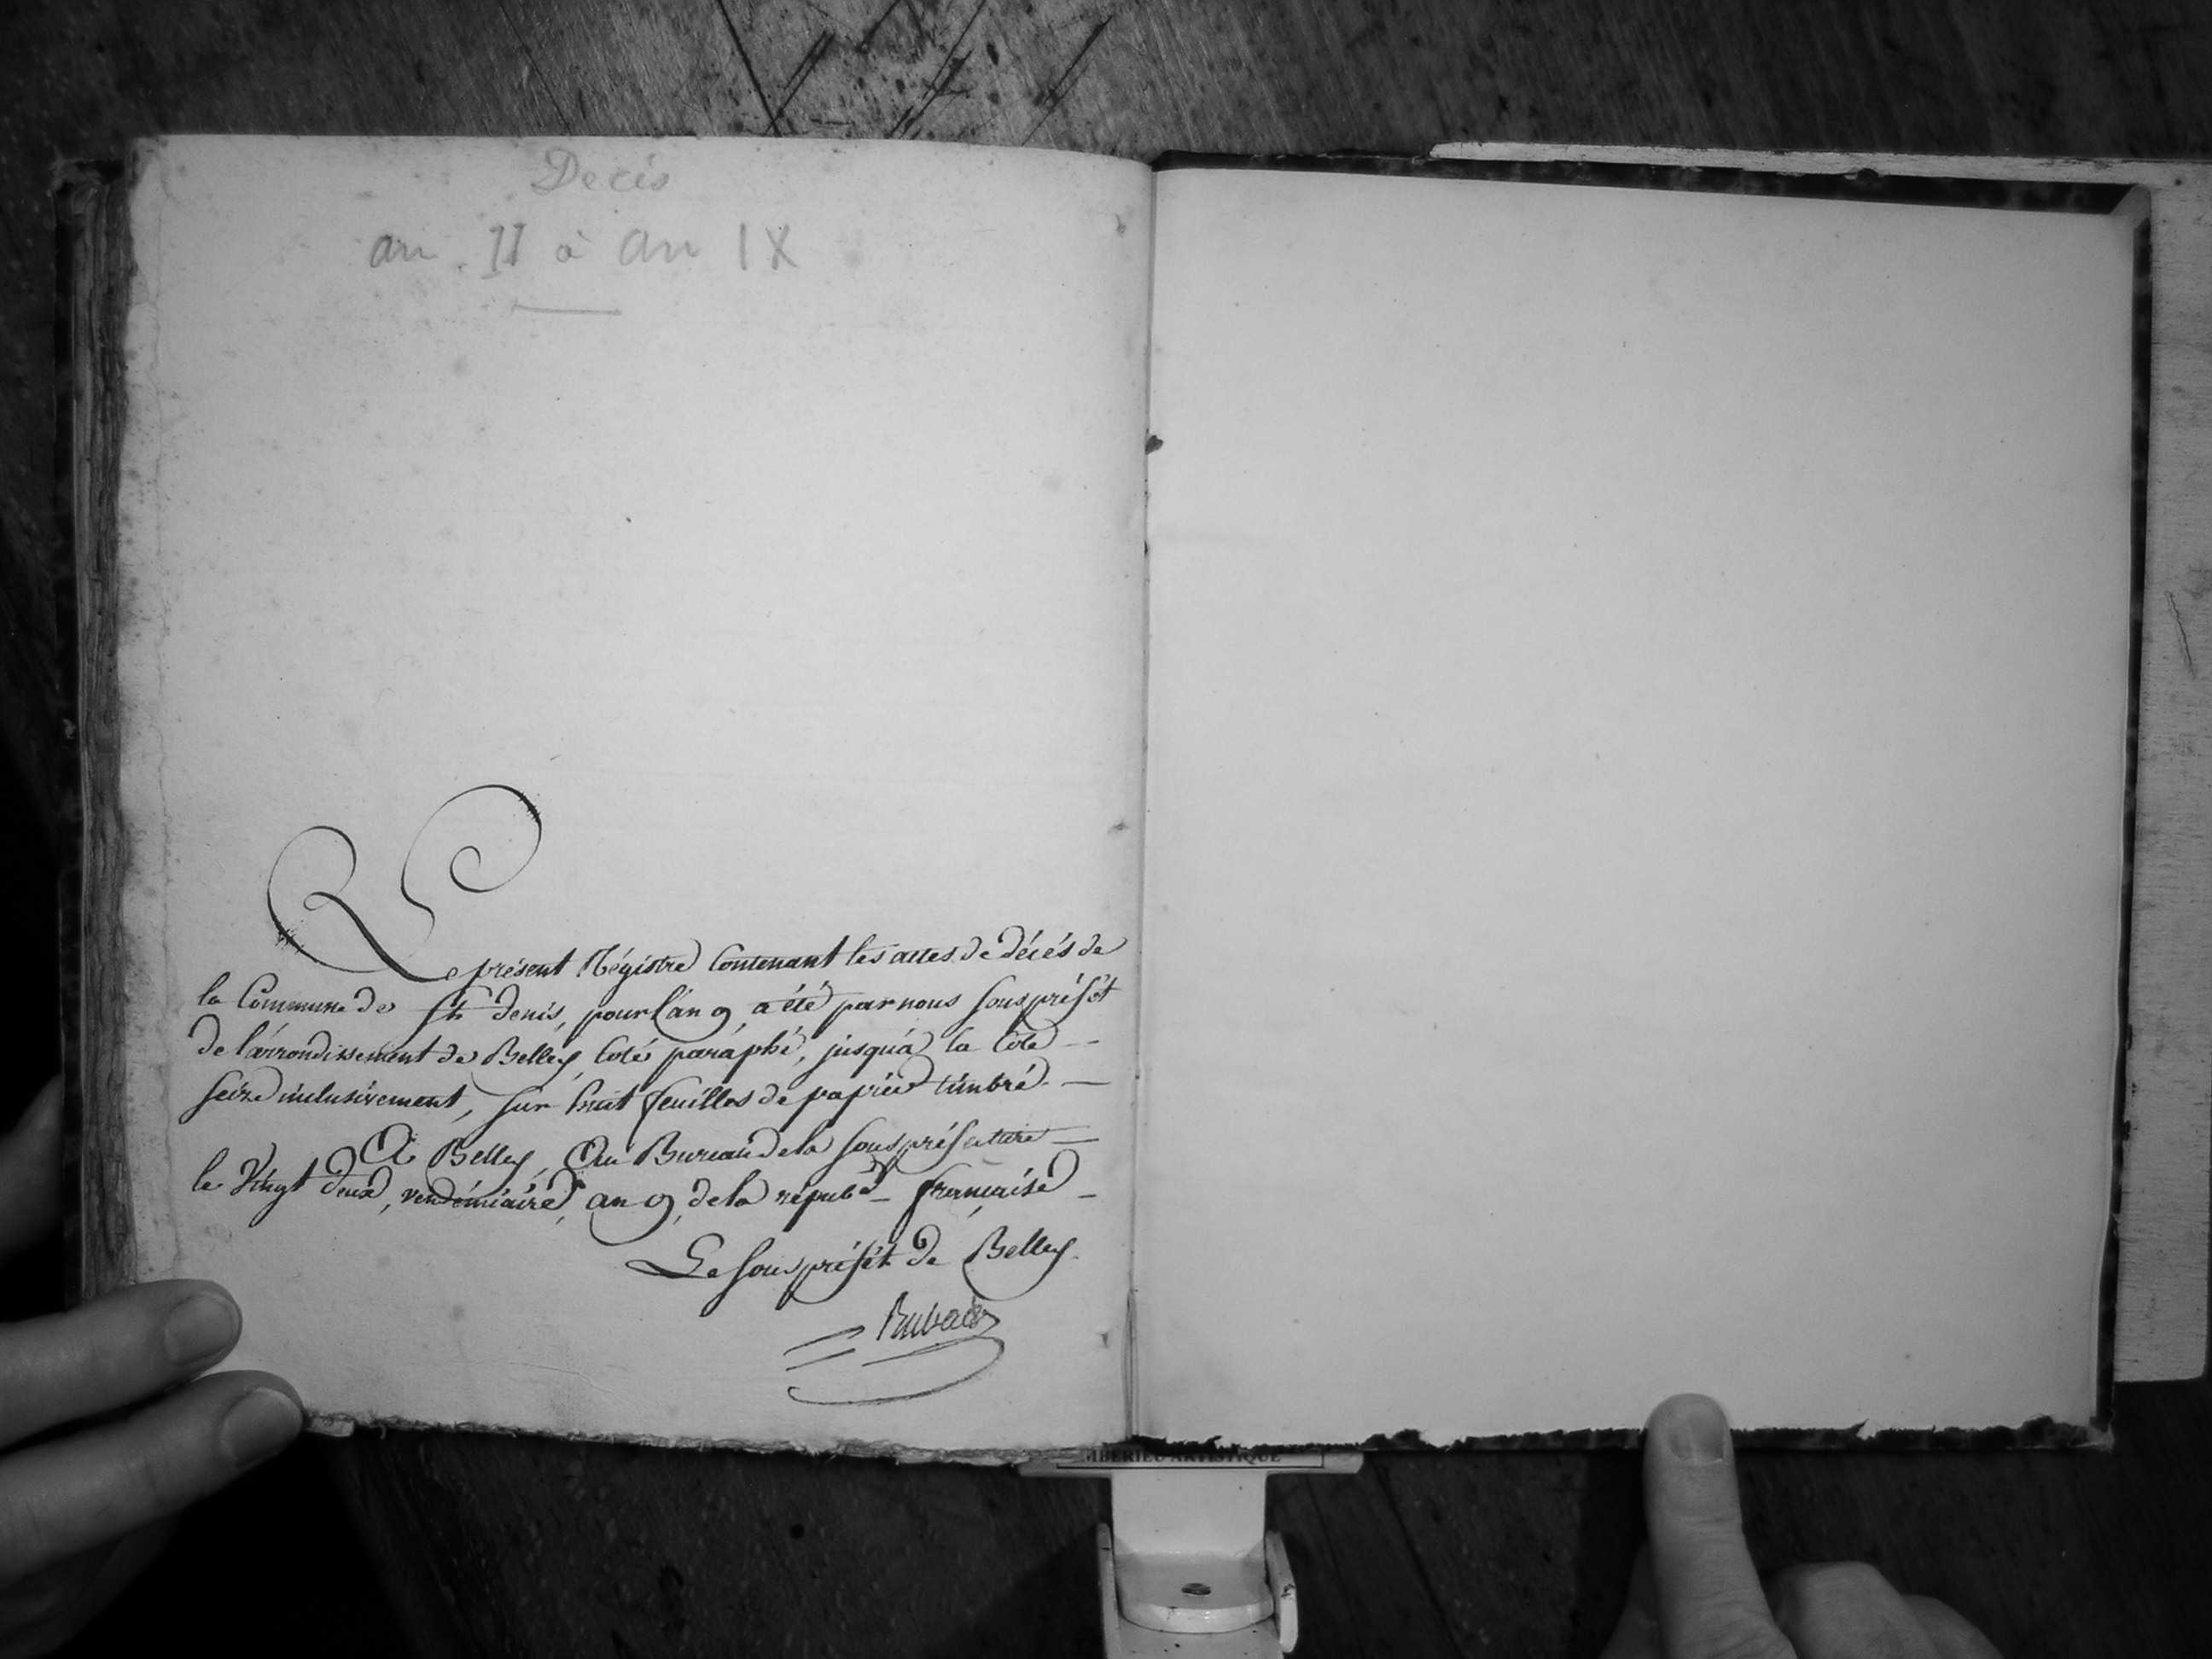 Décès
an II à an IX
Le présent Régistre Contenant les actes de décés de
la Commune de St denis, pour l'an 9, a été par nous sous préfét
de l'arrondissement de Belley, Coté paraphé, jusqu'á la Cote --
seize inclusivement, sur huit feuilles de papier timbré. —
A Belley, Au Bureau de la sous préfecture —
le Vingt deux, vendémiaire, an 9, de la républ - française -
Le sous préfét de Belley.
MBERIEU ARTISTIQUE